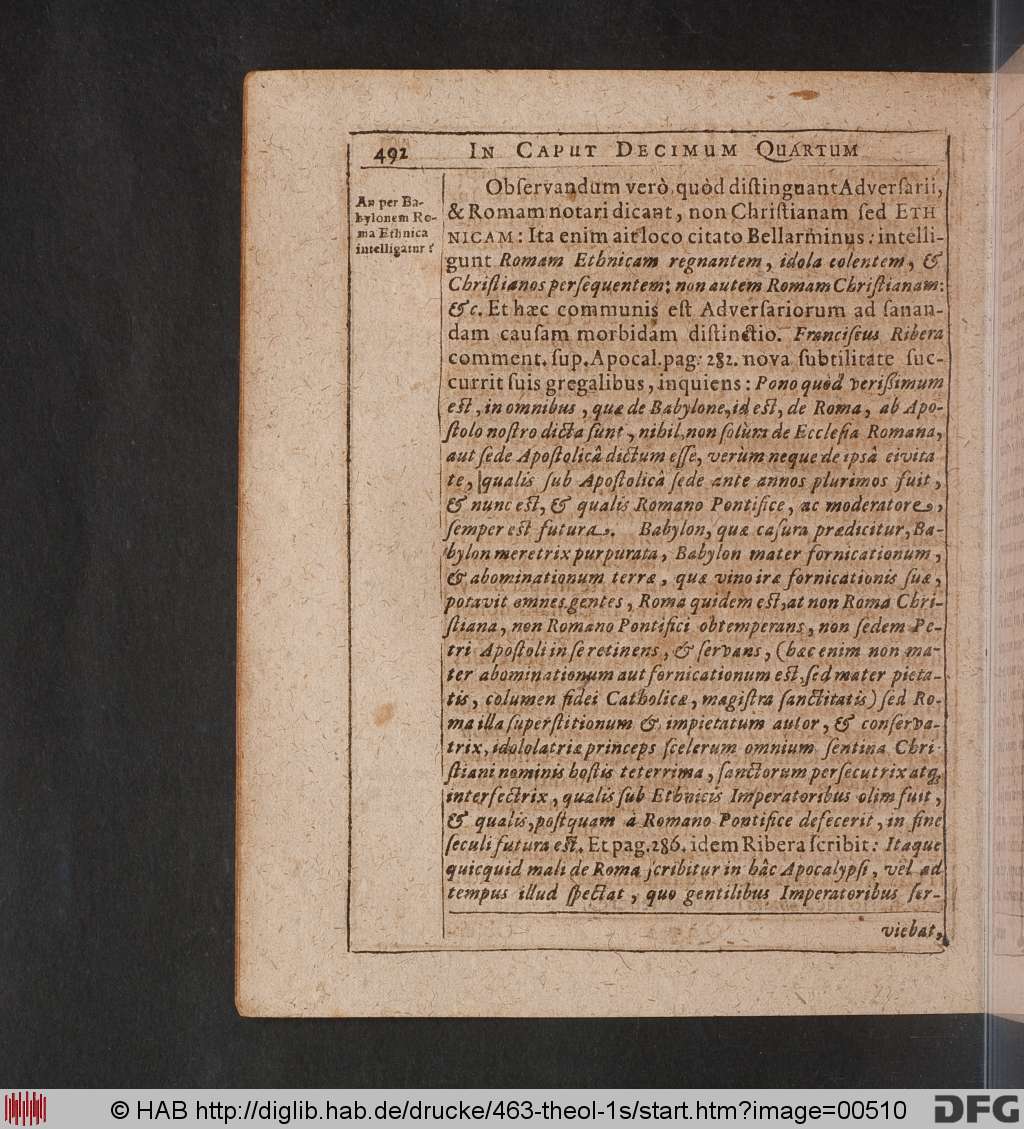 492 IN CAPUT DECIMUM QUARTUM
An per Ba-
bylonem Ro-
ma Ethnica
intelligatur?
Obſervandum verò quòd diſtinguant Adverſarii,
& Romam notari dicant, non Chriſtianam ſed ETH
NICAM: Ita enim ait loco citato Bellarminus: intelli-
gunt Romam Ethnicam regnantem, idola colentem, &
Chriſtianos perſequentem: non autem Romam Chriſtianam:
&c. Et hæc communis eſt Adverſariorum ad ſanan-
dam cauſam morbidam diſtinctio. Franciſcus Ribera
comment. ſup. Apocal. pag. 282. nova ſubtilitate ſuc-
currit ſuis gregalibus, inquiens: Pono quòd veriſſimum
eſt, in omnibus, quæ de Babylone, id eſt, de Roma, ab Apo-
ſtolo noſtro dicta ſunt, nihil, non ſolùm de Eccleſia Romana,
aut ſede Apoſtolicâ dictum eſſe, verùm neque de ipsâ civita
te, qualis ſub Apoſtolicâ ſede ante annos plurimos fuit,
& nunc eſt, & qualis Romano Pontifice, ac moderatore,
ſemper eſt futura. Babylon, quæ caſura prædicitur, Ba-
bylon meretrix purpurata, Babylon mater fornicationum,
& abominationum terræ, quæ vino iræ fornicationis ſuæ,
potavit omnes gentes, Roma quidem eſt, at non Roma Chri-
ſtiana, non Romano Pontifici obtemperans, non ſedem Pe-
tri Apoſtoli in ſe retinens, & ſervans, (hæc enim non ma-
ter abominationum aut fornicationum eſt, ſed mater pieta-
tis, columen fidei Catholicæ, magiſtra ſanctitatis) ſed Ro-
ma illa ſuperſtitionum & impietatum autor, & conſerva-
trix, idololatriæ princeps ſcelerum omnium ſentina Chri
ſtiani nominis hoſtis teterrima, ſanctorum perſecutrix atq;
interfectrix, qualis ſub Ethnicis Imperatoribus olim fuit,
& qualis, poſtquam à Romano Pontifice defecerit, in fine
ſeculi futura eſt. Et pag. 286. idem Ribera ſcribit: Itaque
quicquid mali de Roma ſcribitur in hâc Apocalypſi, vel ad
tempus illud ſpectat, quo gentilibus Imperatoribus ſer-
viebat,
© HAB http://diglib.hab.de/drucke/463-theol-1s/start.htm?image=00510
DFG